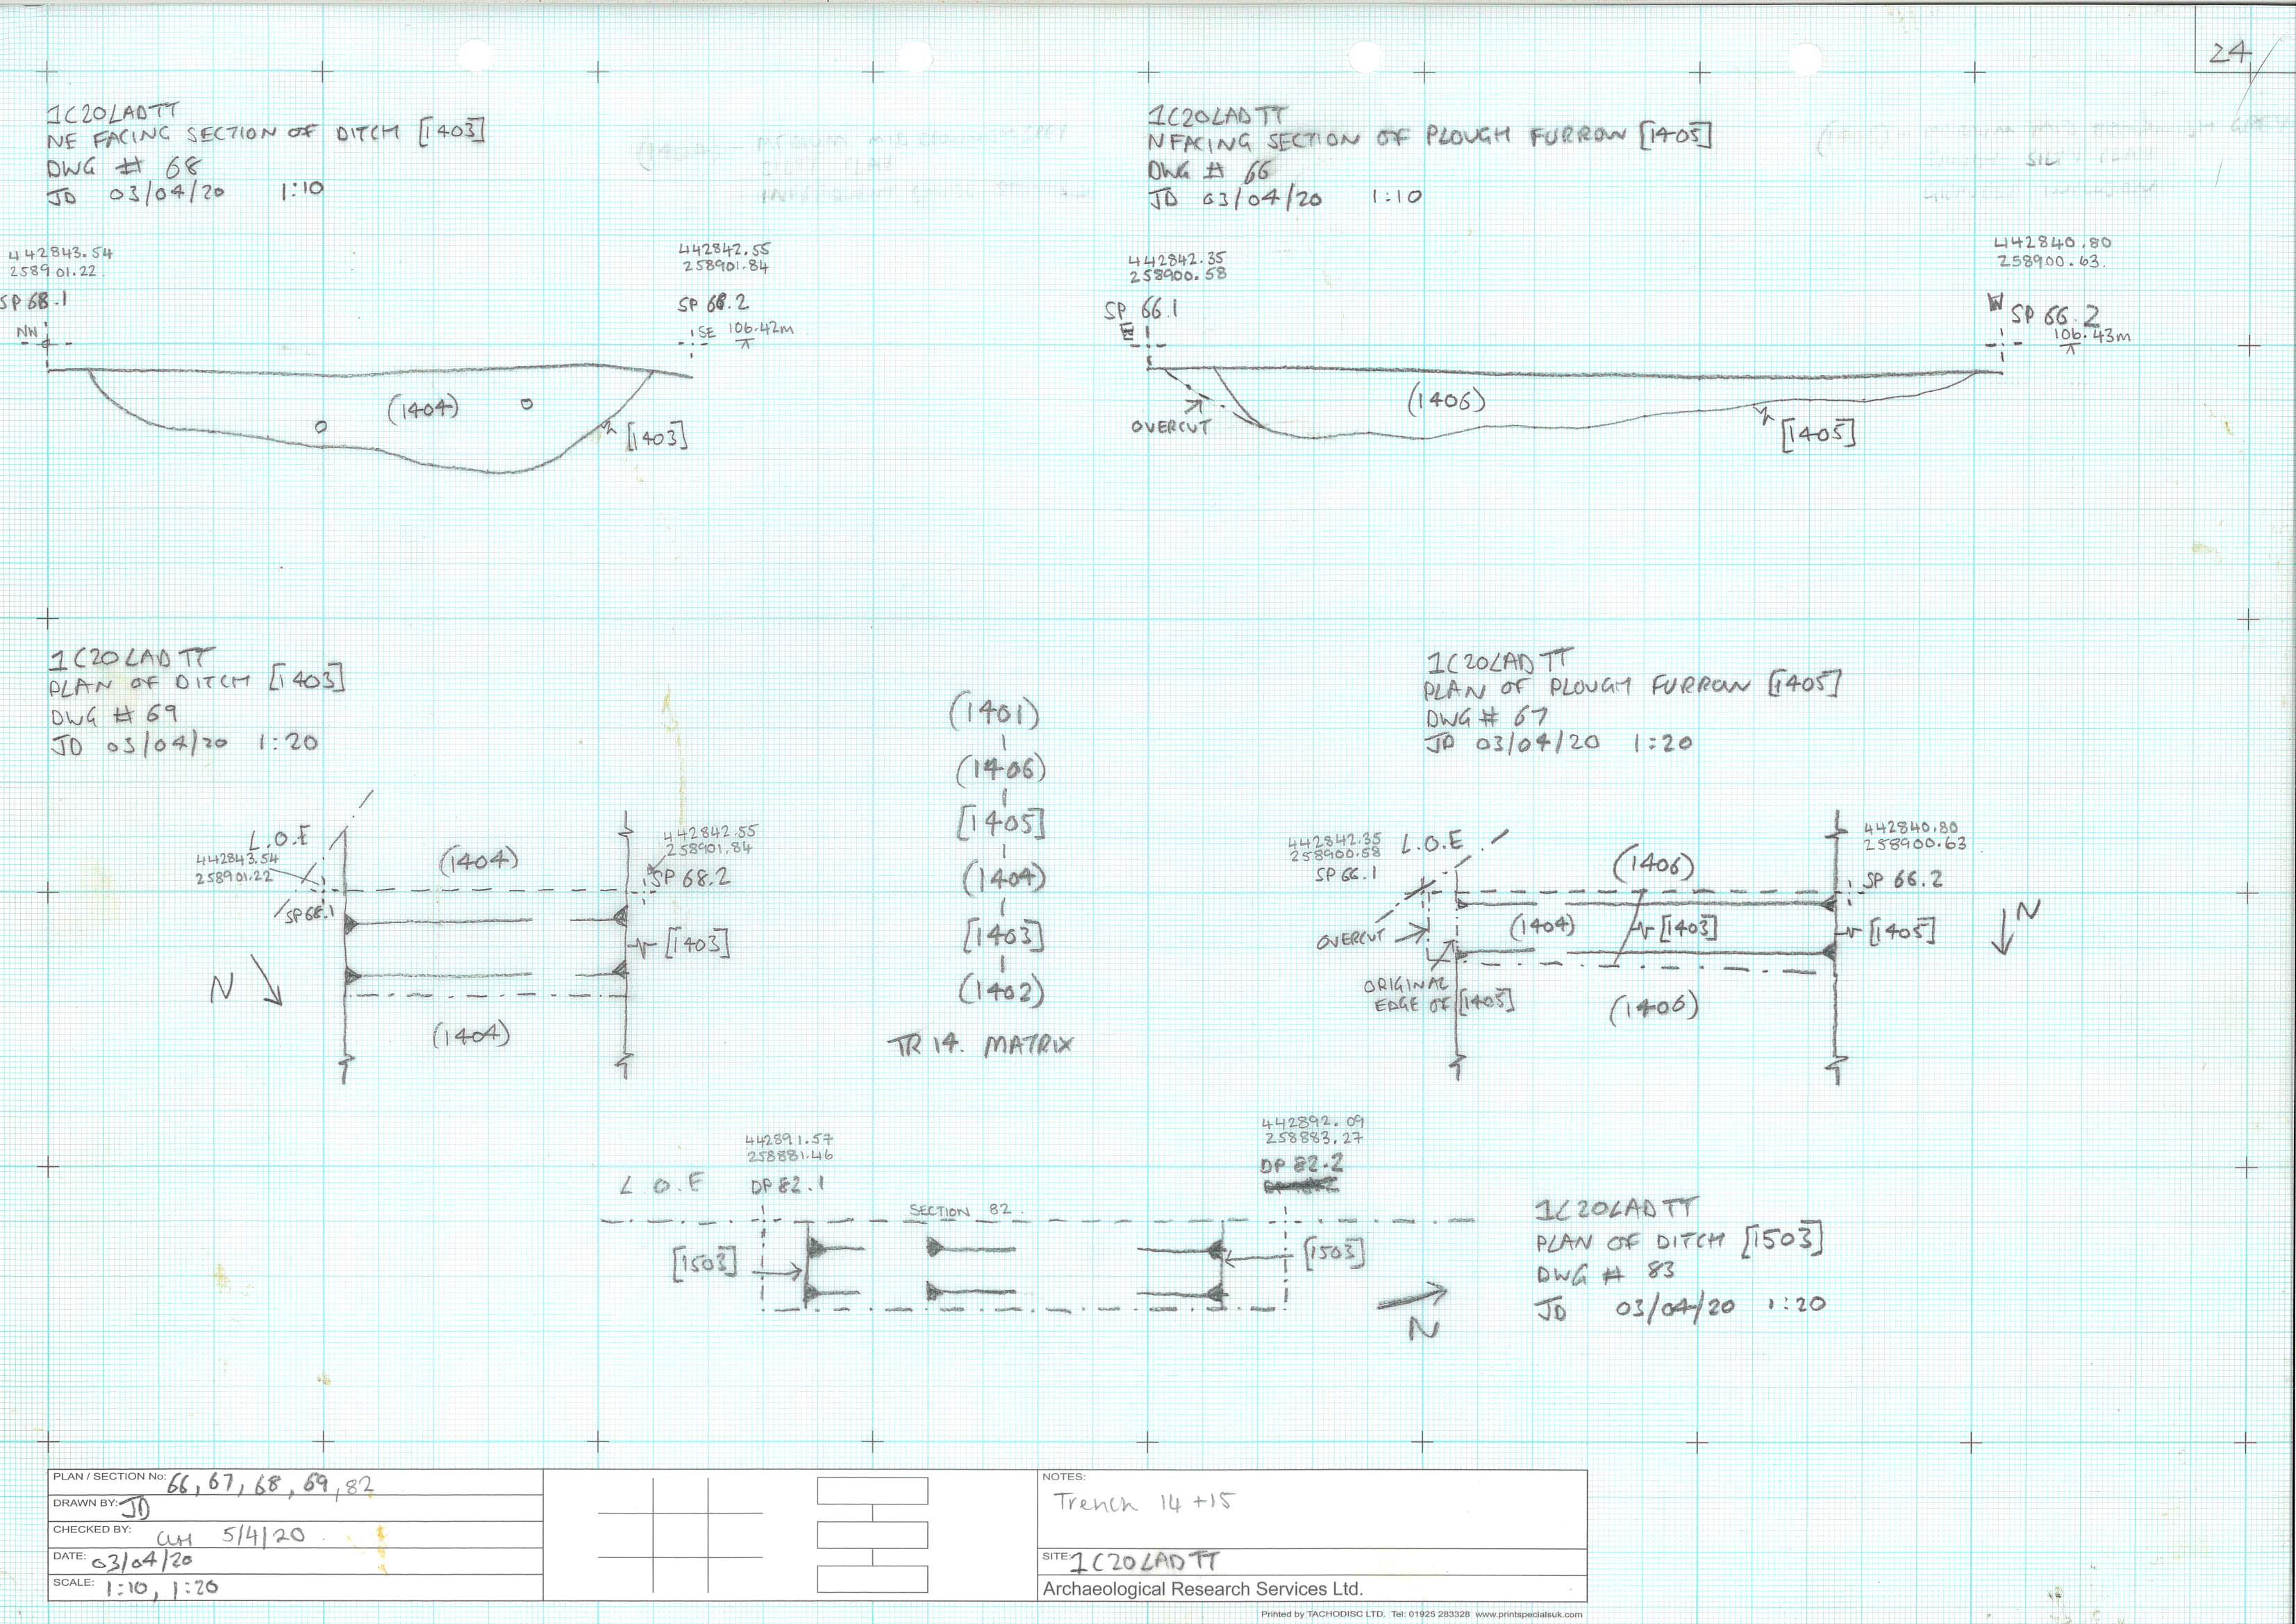 24
1C20LADTT
NE FACING SECTION OF DITCH [1403]
DWG # 68
JD 03/04/20 1:10
442843.54
258901.22
SP 68.1
NW
442842.55
258901.84
SP 68.2
SE 106.42m
(1404)
[1403]
1C20LADTT
N FACING SECTION OF PLOUGH FURROW [1405]
DWG # 66
JD 03/04/20 1:10
442842.35
258900.58
SP 66.1
E
442840.80
258900.63
W SP 66.2
106.43m
OVERCUT
(1406)
[1405]
1C20LADTT
PLAN OF DITCH [1403]
DWG # 69
JD 03/04/20 1:20
L.O.E
442843.54
258901.22
SP 68.1
(1404)
442842.55
258901.84
SP 68.2
[1403]
N
(1404)
(1401)
(1406)
[1405]
(1404)
[1403]
(1402)
TR 14. MATRIX
1C20LADTT
PLAN OF PLOUGH FURROW [1405]
DWG # 67
JD 03/04/20 1:20
442842.35
258900.58
SP 66.1
L.O.E
(1406)
442840.80
258900.63
SP 66.2
OVERCUT
(1404)
[1403]
[1405]
N
ORIGINAL
EDGE OF [1405]
(1406)
442891.57
258881.46
L.O.E DP 82.1
442892.09
258883.27
DP 82.2
SECTION 82.
[1503]
[1503]
N
1C20LADTT
PLAN OF DITCH [1503]
DWG # 83
JD 03/04/20 1:20
PLAN / SECTION No: 66, 67, 68, 69, 82
DRAWN BY: JD
CHECKED BY: 5/4/20
DATE: 03/04/20
SCALE: 1:10, 1:20
NOTES:
Trench 14 +15
SITE: 1C20LADTT
Archaeological Research Services Ltd.
Printed by TACHODISC LTD. Tel: 01925 283328 www.printspecialsuk.com